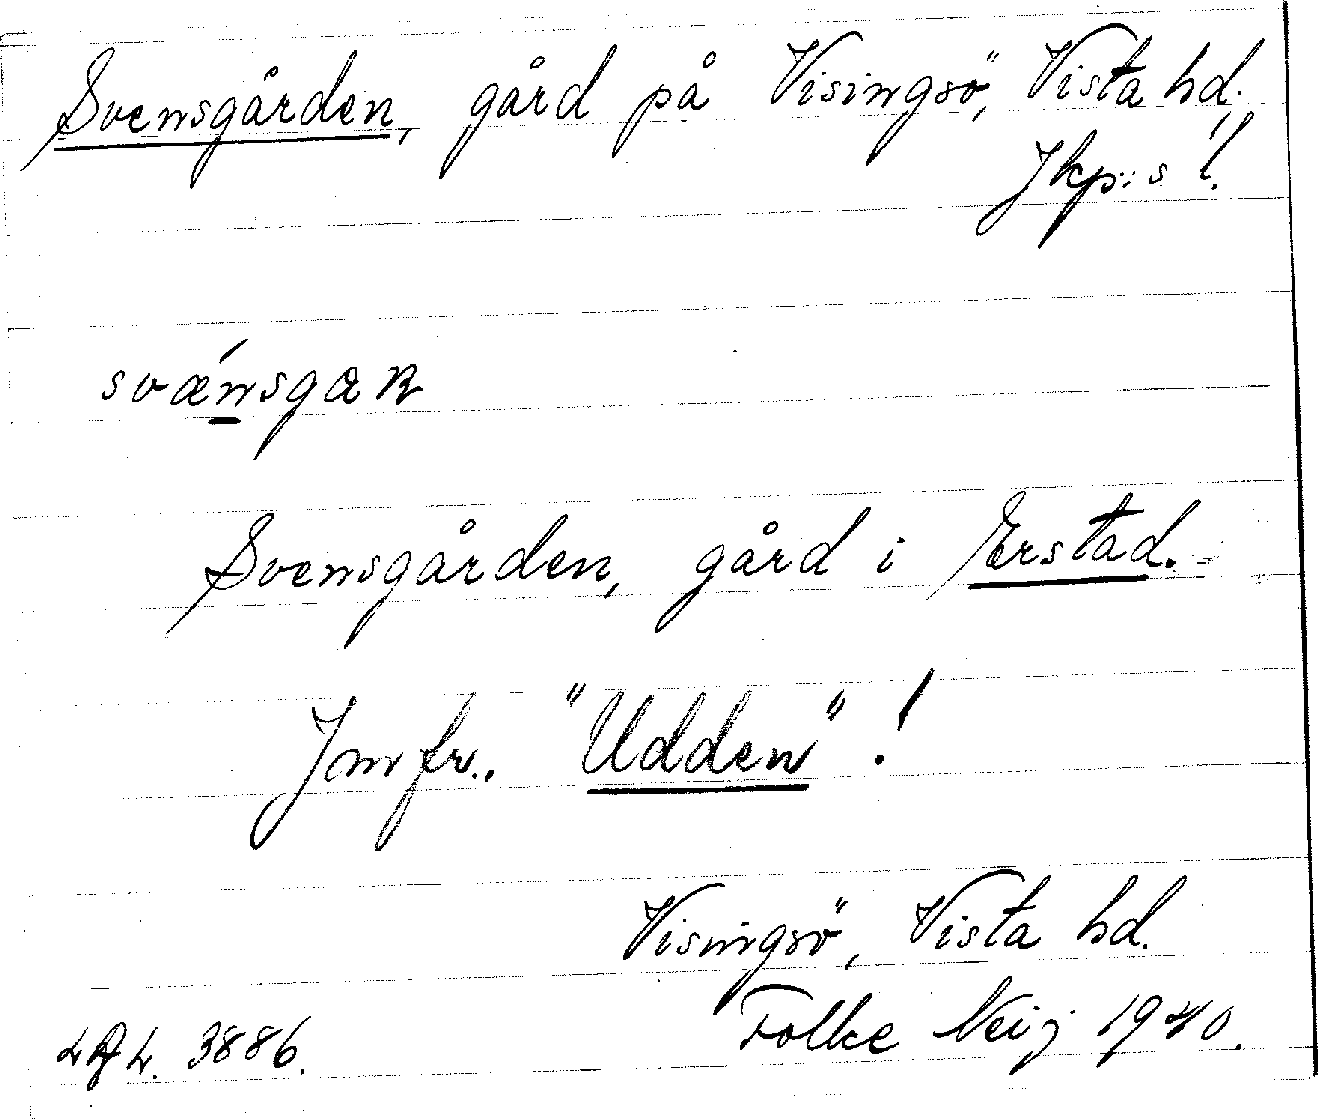 Svensgården, gård på Visingsö, Vista hd.,
Jkp:s l.
svǽnsgaʀ
Svensgården, gård i Erstad.
Jmfr. "Udden"!
Visingsö, Vista hd.
Folke Neij 1940.
3886.